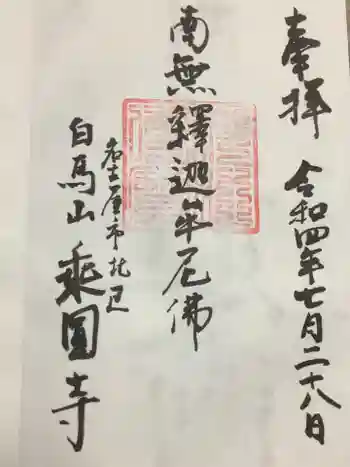 奉拝
令和四年七月二十八日
南無釋迦牟尼佛
名古屋市北区
白馬山 乘圓寺